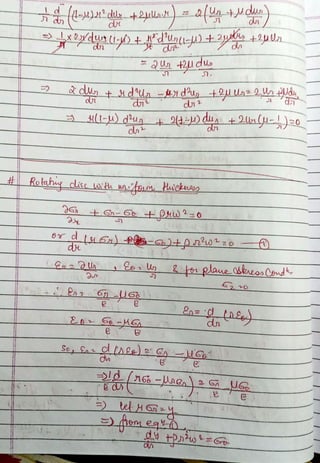 1/r d/dr ((1-μ)r² dur/dr + 2μur r) = 2(ur/r + μ dur/dr)
⇒ 1/r × 2r dur/dr (1-μ) + r² d²ur/dr² (1-μ) + 2μ dur/dr + 2μur
= 2ur/r + 2μ dur/dr
⇒ 2 dur/dr + r d²ur/dr² - μr d²ur/dr² + 2μur = 2ur/r +
⇒ r(1-μ) d²ur/dr² + 2(1-μ) dur/dr + 2ur(μ-1/r) = 0
# Rotating disc with uniform thickness
∂σr/∂r + σr-σθ/r + ρrω² = 0
or d/dr (rσr) -σθ) + ρr²ω² = 0 — ①
εr = ∂ur/∂r , εθ = ur/r & for plane stress condn
σz = 0
∴ εr = σr/E - μσθ/E
εr = d/dr (rεθ)
εθ = σθ/E - μσr/E
so, εr = d/dr (rεθ) = σr/E - μσθ/E
⇒ d/dr (rσθ - μrσr) = σr/E - μσθ/E
⇒ let rσr = y
⇒ from eqn ①
dy/dr + ρr²ω² = σθ